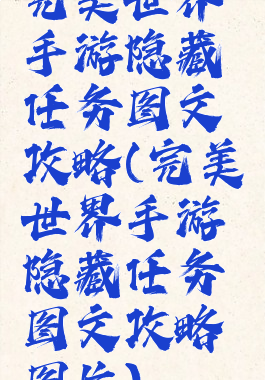 完美世界
手游隐藏
任务图文
攻略(完美
世界手游
隐藏任务
图文攻略
图片)